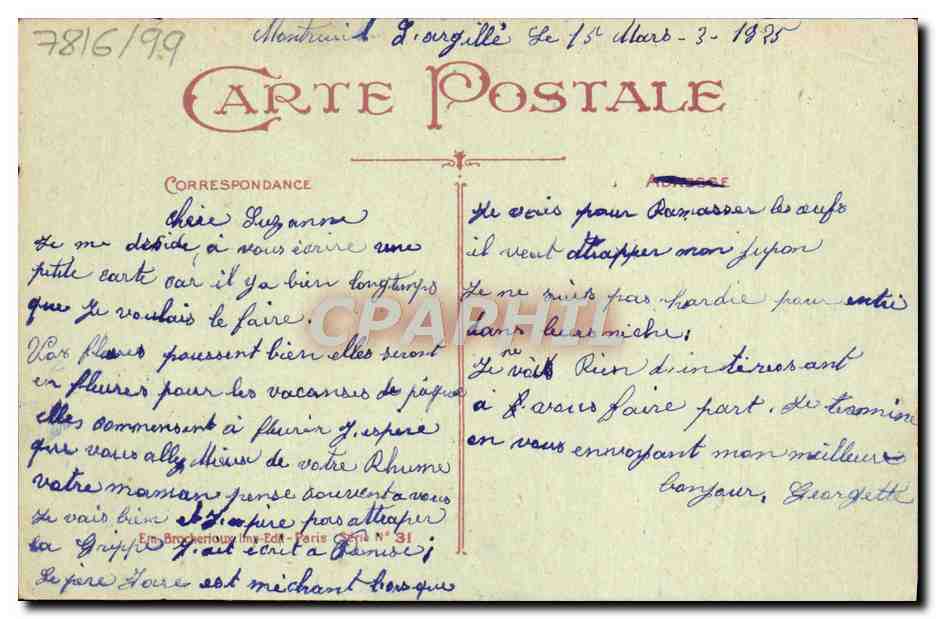 7816/99
Montreuil L'argillé Le 15 Mars - 3 - 1925
CARTE POSTALE
CORRESPONDANCE
ADRESSE
chère Suzanne
Je me déside à vous écrire une
petite carte car il y a bien longtemps
que Je voulais le faire.
Vos fleures poussent bien elles seront
en fleures pour les vacanses de pâque
elles commensent à fleurir J'espère
que vous allez Mieux de votre Rhume
votre maman pense souvent a vous
Je vais bien et J'espère pas attraper
la Grippe J'ait écrit a Denise;
Le père Jare est méchant lorsque
Em. Brocherioux Imp-Edit - Paris Série No 31
Je vais pour Ramasser les oeufs
il veut attrapper mon jupon
Je ne suies pas hardie pour entré
dans leurs niche;
Je ne vois Rien d'intéressant
à vous faire part. Je termine
en vous envoyant mon meilleure
bonjour, Georgette
CPAPHIL